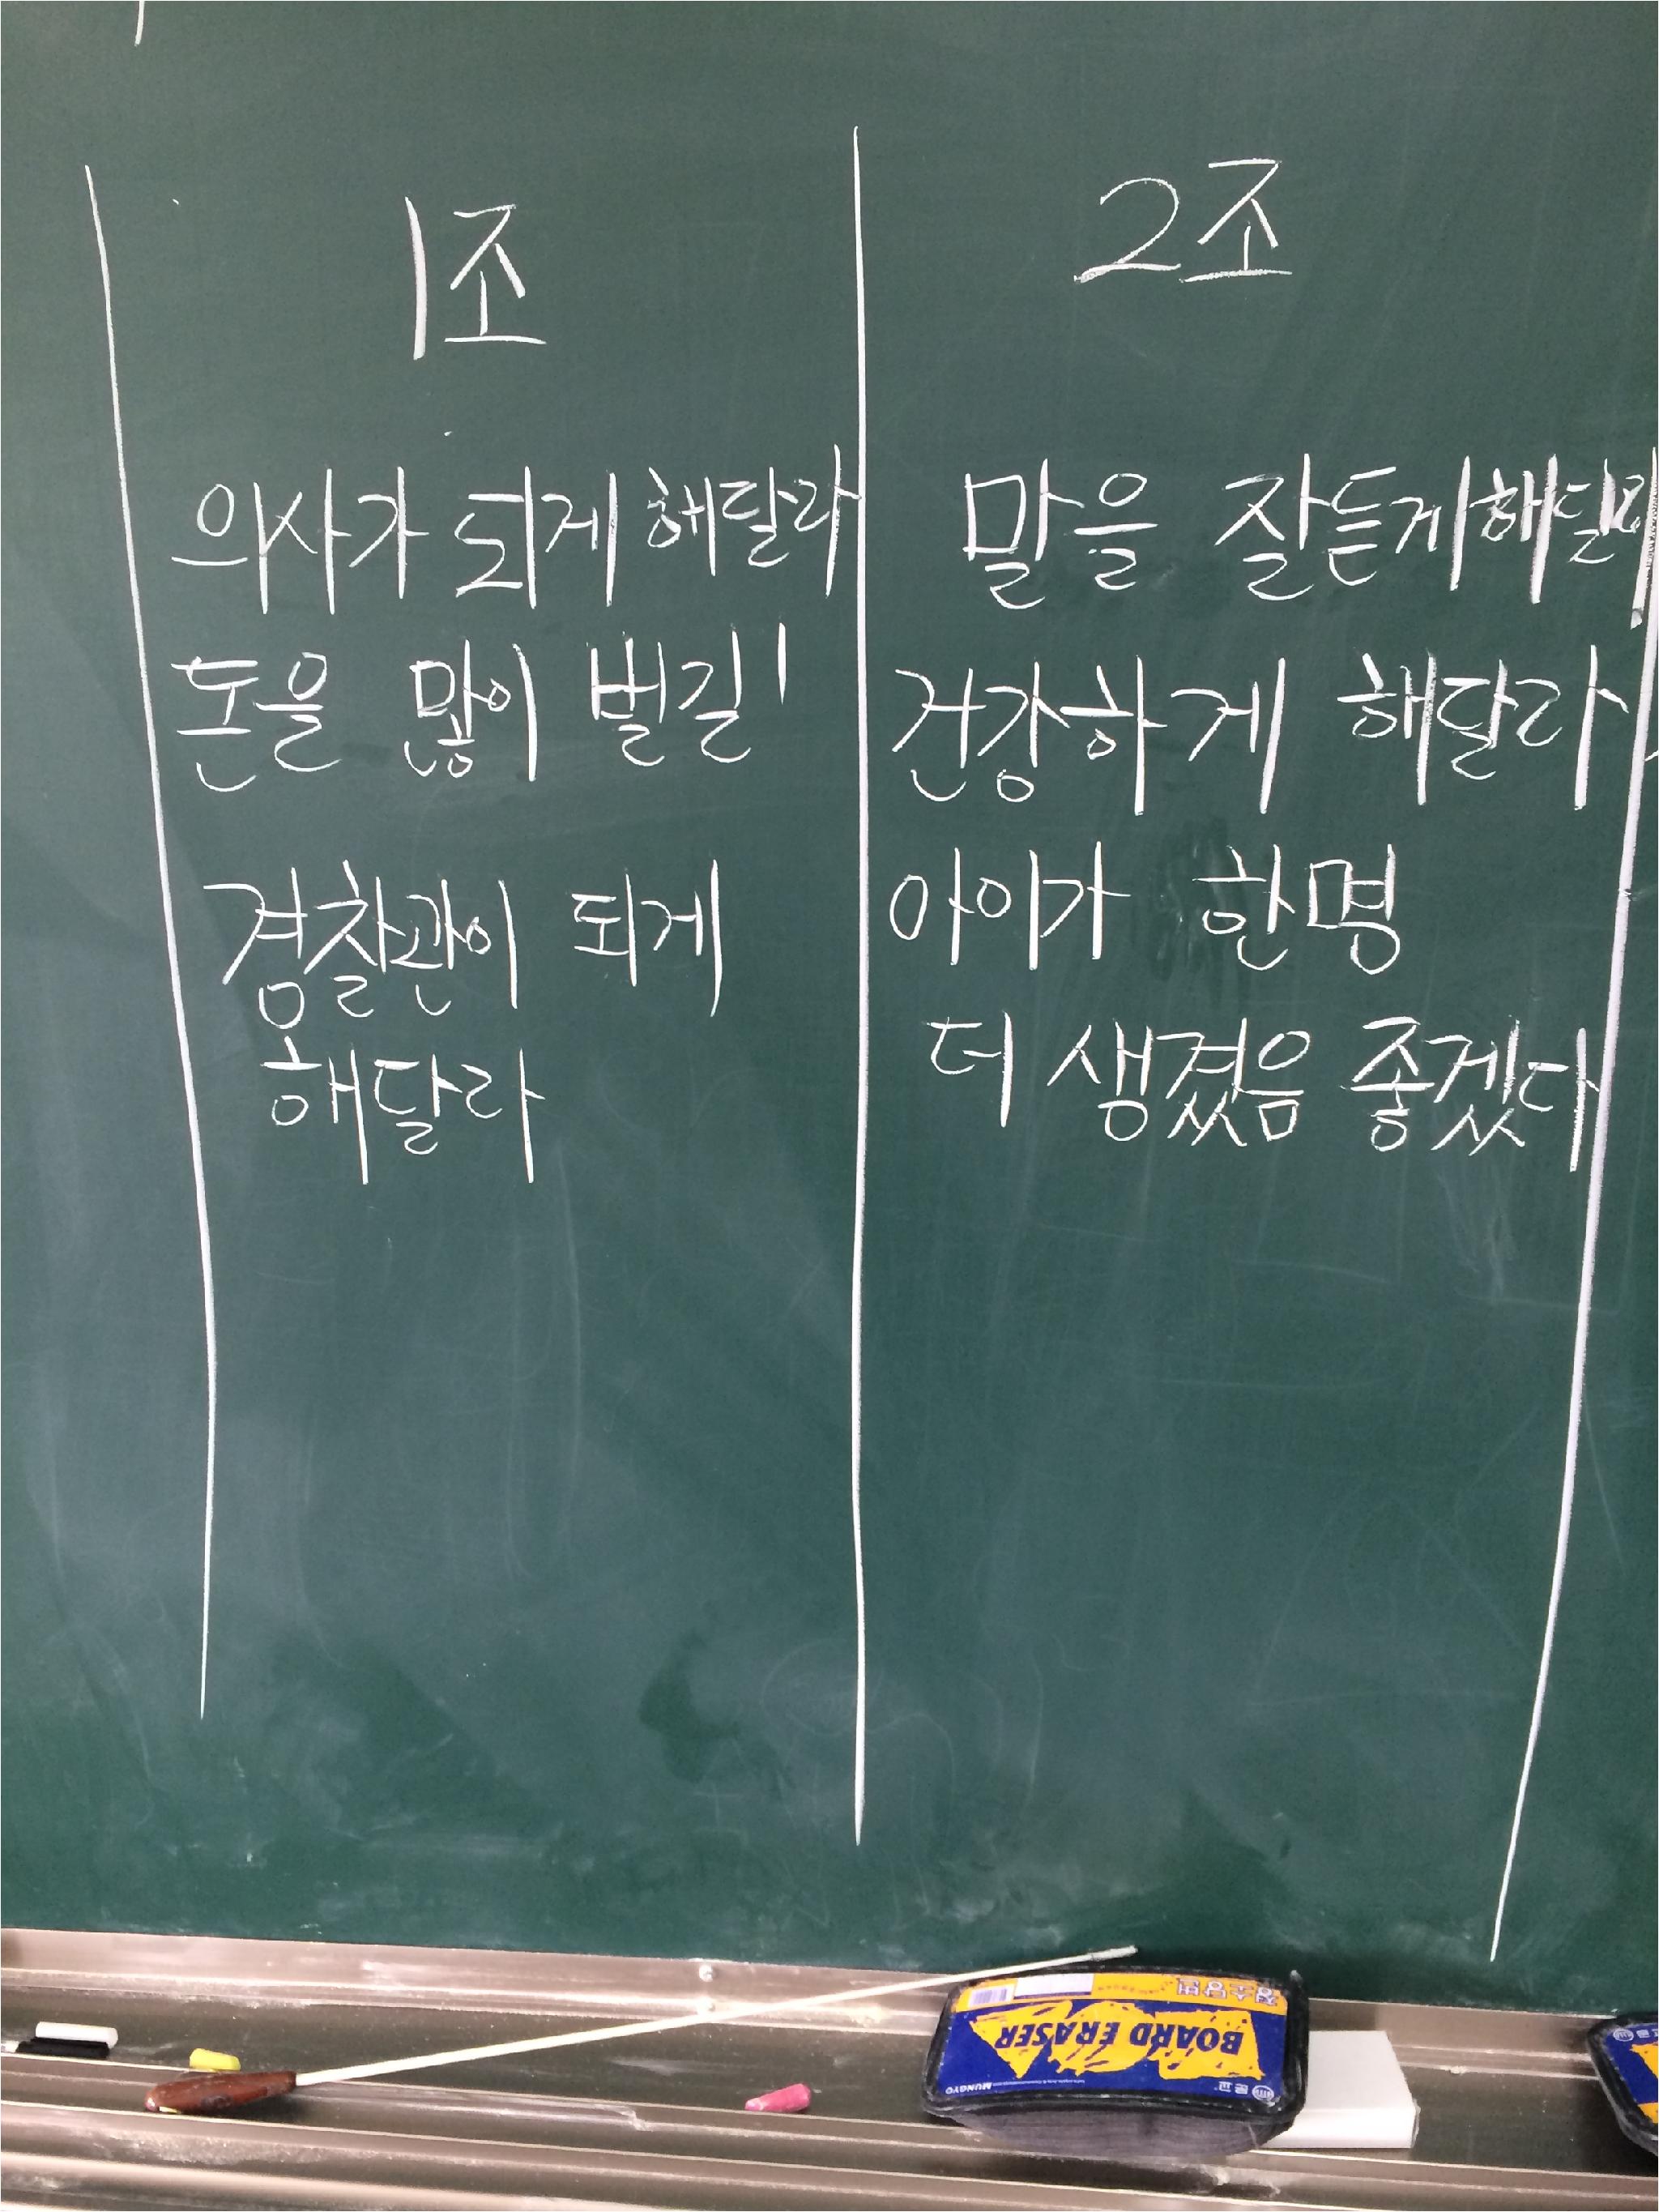 1조
의사가 되게 해달라
돈을 많이 벌길!
경찰관이 되게
해달라
2조
말을 잘듣게해달라
건강하게 해달라
아이가 한명
더 생겼음 좋겠다
BOARD ERASER
MUNGYO
문교